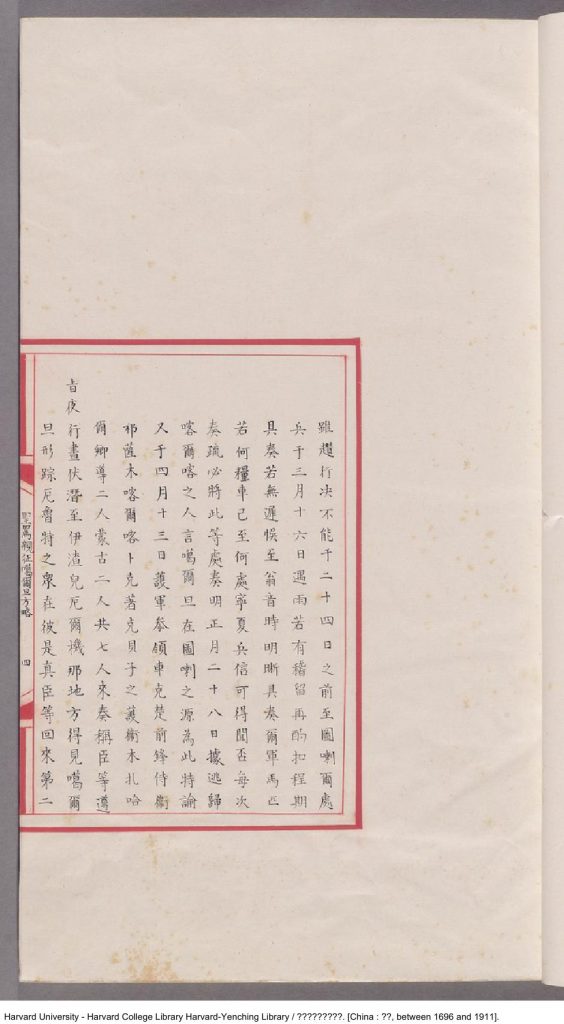 雖趲行決不能于二十四日之前至圖喇爾處
兵于三月十六日遇雨若有稽留再酌扣程期
具奏若無遲悞至翁音時明晰具奏爾軍馬匹
若何糧車已至何處寧夏兵信可得聞否每次
奏疏必將此等處奏明正月二十八日據逃歸
喀爾喀之人言噶爾旦在圖喇之源為此特諭
又于四月十三日護軍叅領車克楚前鋒侍衛
祁薩木喀爾喀卜克著克貝子之護衛木扎哈
爾鄉導二人蒙古二人共七人來奏稱臣等遵
旨夜行晝伏潛至伊渣兒厄爾機那地方得見噶爾
旦形踪厄魯特之衆在彼是真臣等回來第二
聖駕親征噶爾旦方略
四
Harvard University - Harvard College Library Harvard-Yenching Library / ?????????. [China : ??, between 1696 and 1911].